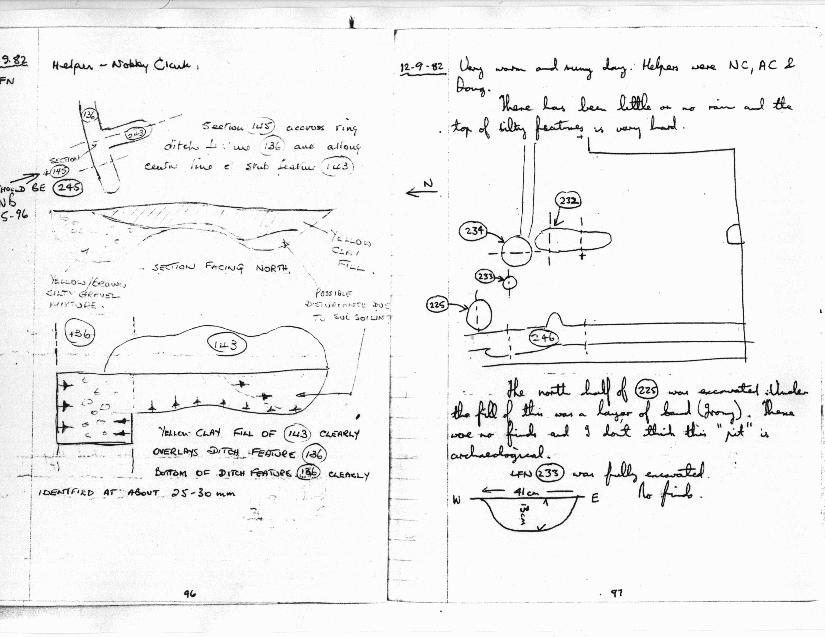 9.82
FN
Helper - Nobby Clark.
136
243
SECTION
145
SHOULD BE 245
Nb
5-96
Section 145 accross ring
ditch 136 and along
centre line of stub feature 143
YELLOW
CLAY
FILL.
SECTION FACING NORTH.
YELLOW/BROWN
SILTY GRAVEL
MIXTURE.
POSSIBLE
DISTURBANCE DUE
TO SUB SOILING
136
143
YELLOW CLAY FILL OF 143 CLEARLY
OVERLAYS DITCH FEATURE 136
BOTTOM OF DITCH FEATURE 136 CLEARLY
IDENTIFIED AT ABOUT 25-30mm
96
12-9-82
Very warm and sunny day. Helpers were NC, AC &
Doug.
There has been little or no rain and the
top of silty features is very hard.
N
232
234
233
225
246
The north half of 225 was excavated. Under
the fill of this was a layer of sand (grey). There
were no finds and I don't think this "pit" is
archaeological.
LFN 233 was fully excavated.
No finds.
W
41cm
E
97